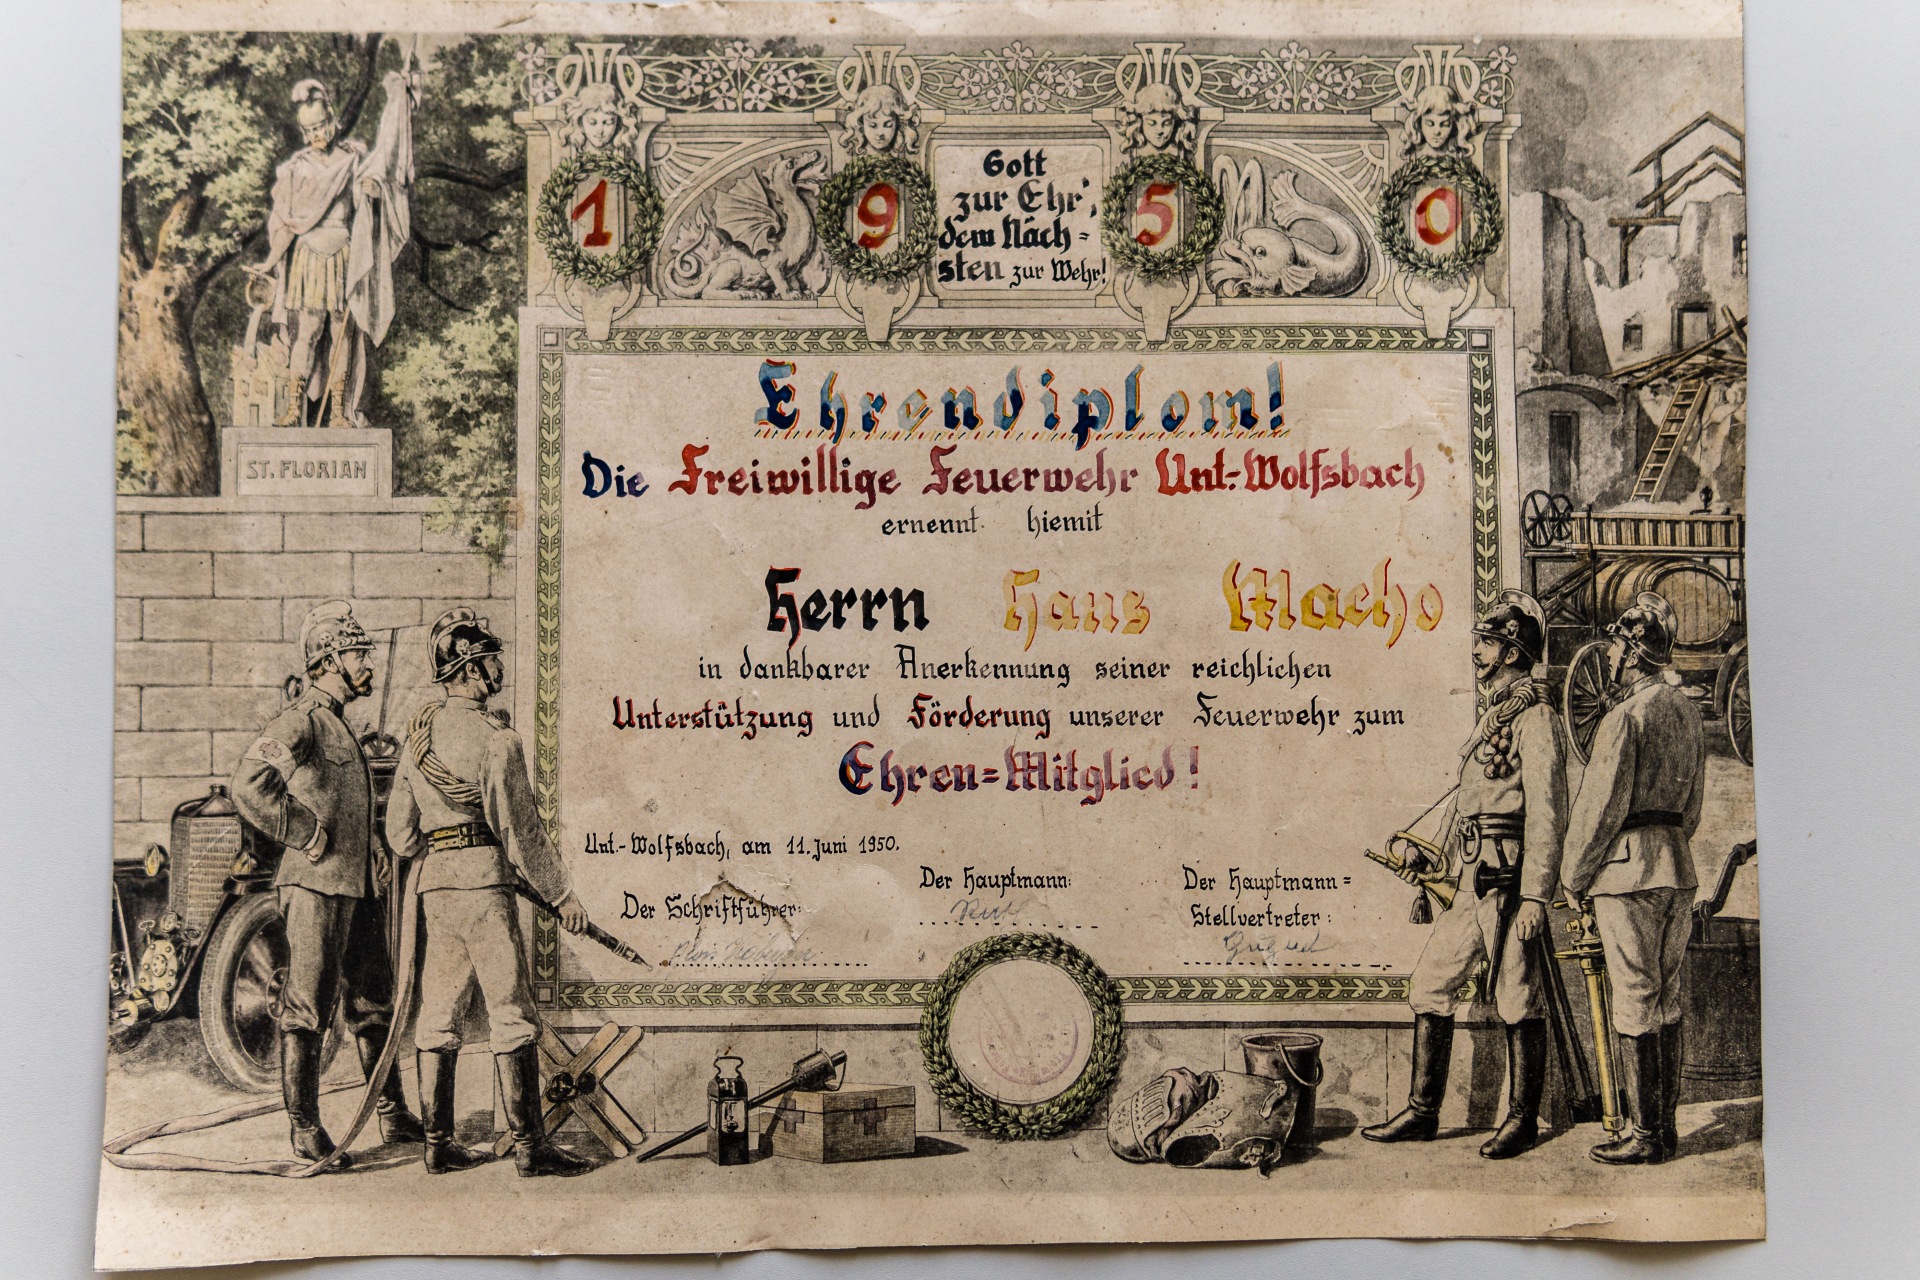 1 9 5 0
Gott
zur Ehr',
dem Näch=
sten zur Wehr!
ST. FLORIAN
Ehrendiplom!
Die Freiwillige Feuerwehr Unt.-Wolfsbach
ernennt hiemit
Herrn Hans Macho
in dankbarer Anerkennung seiner reichlichen
Unterstützung und Förderung unserer Feuerwehr zum
Ehren=Mitglied!
Unt.-Wolfsbach, am 11. Juni 1950.
Der Schriftführer:
Der Hauptmann:
Der Hauptmann=
Stellvertreter: